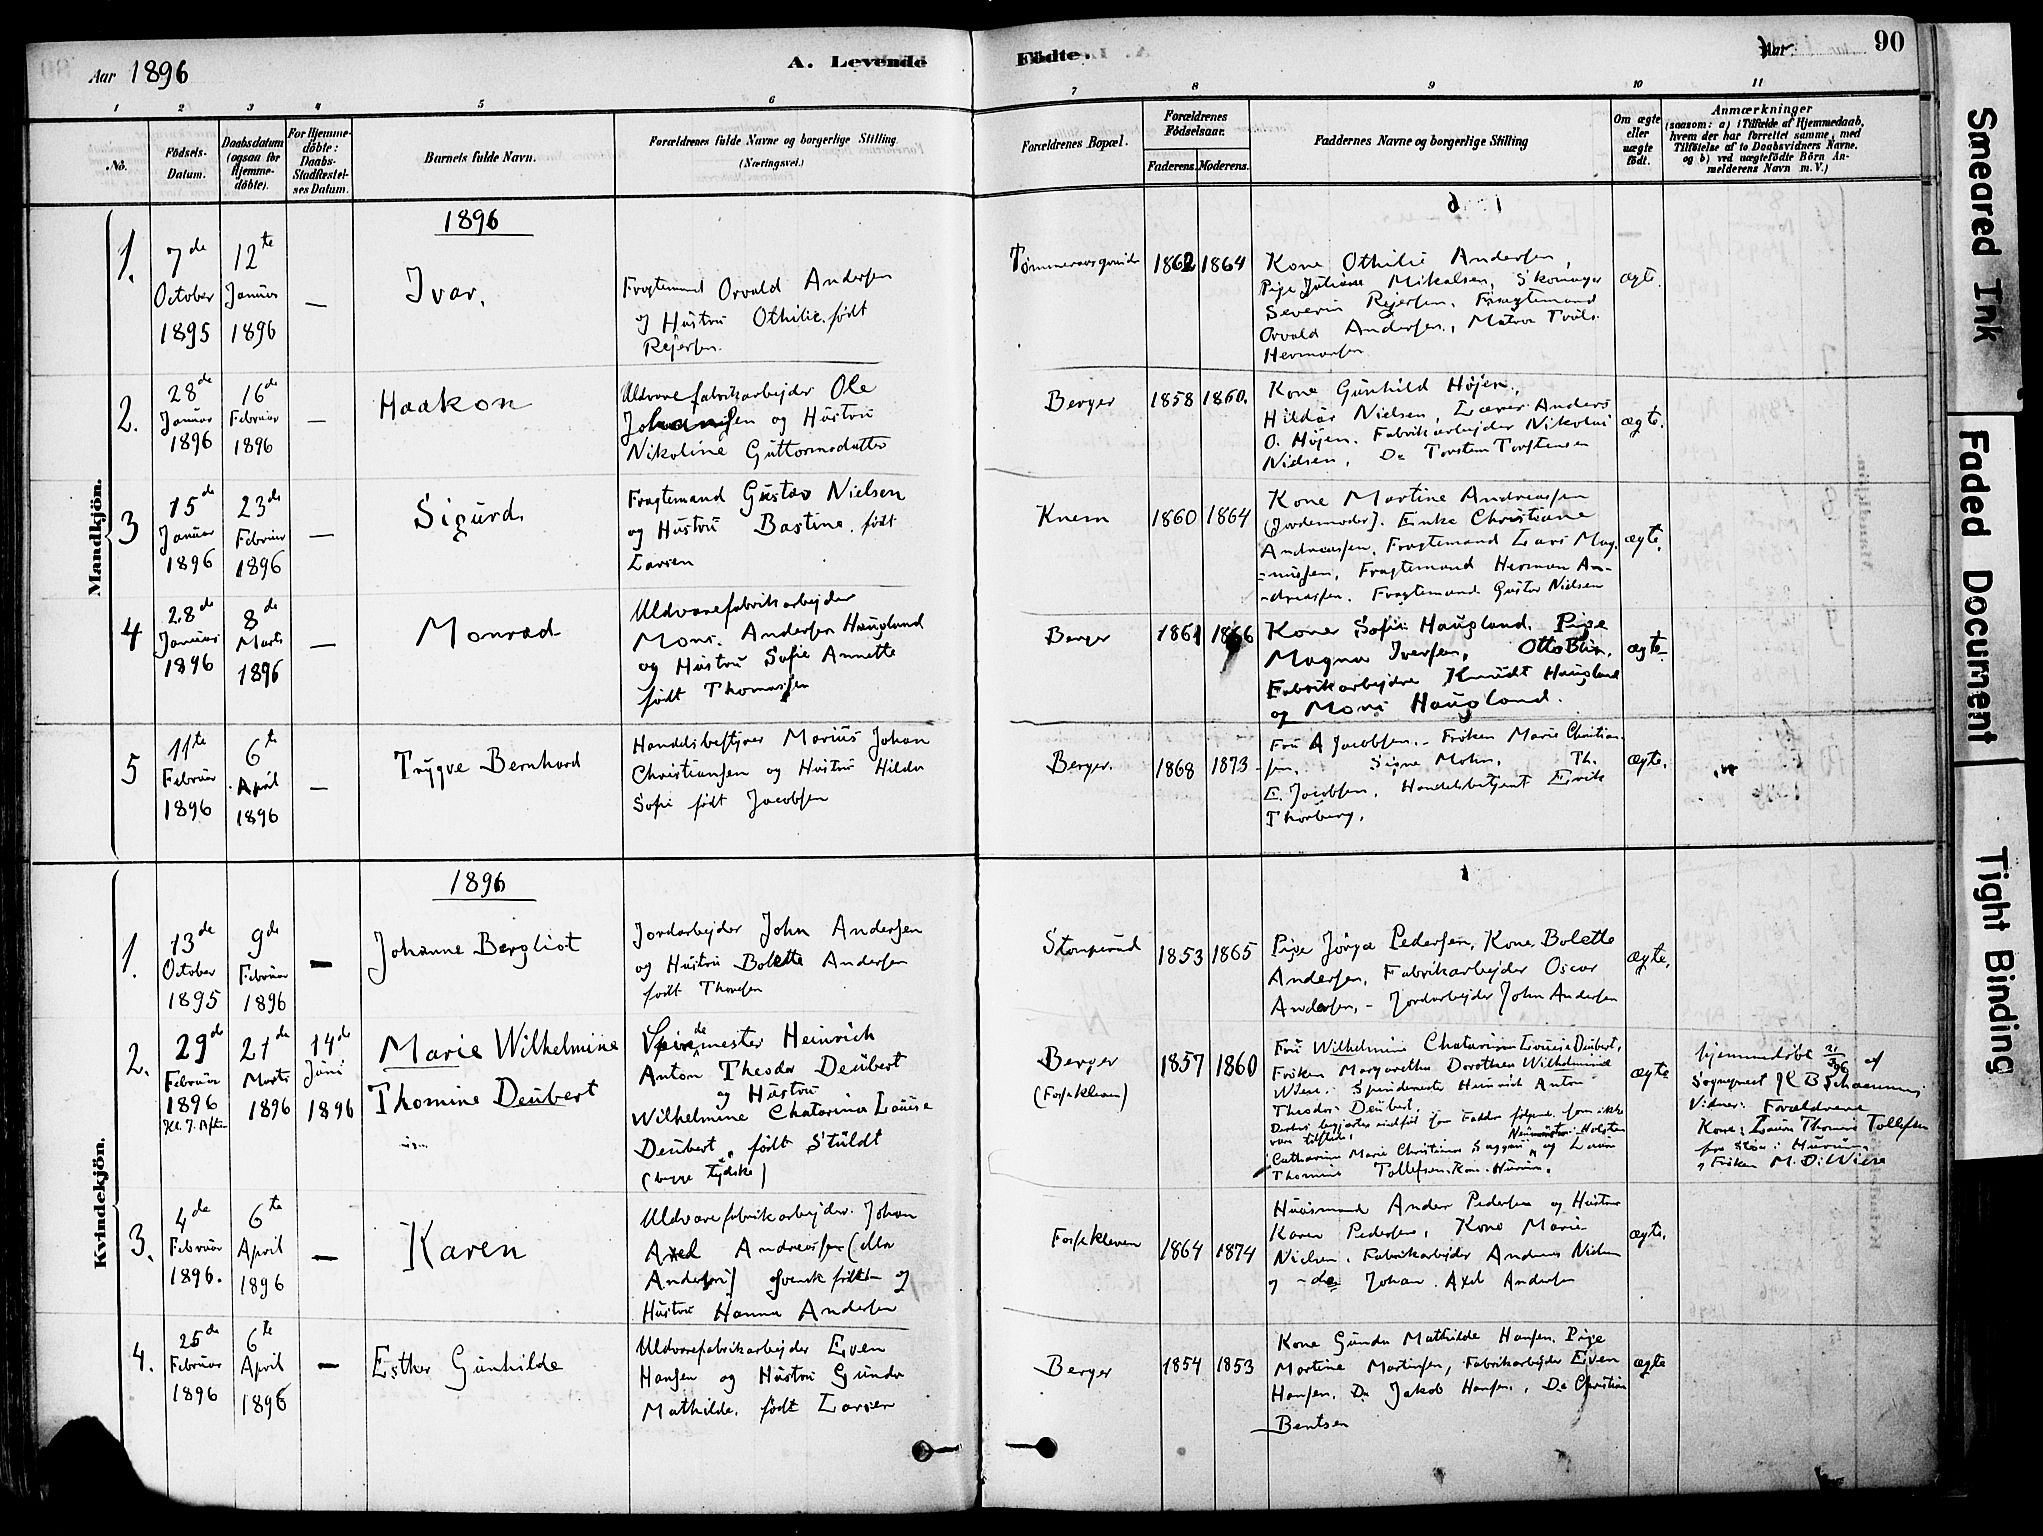 Aar 1896
A. Levende
Födte.
Aar
90
1 2 3 4 5 6 7 8 9 10 11
No.
Födsels-
Datum.
Daabsdatum
(ogsaa for
Hjemme-
döbte).
For Hjemme-
döbte:
Daabs-
Stadfæstel-
ses Datum.
Barnets fulde Navn.
Forældrenes fulde Navne og borgerlige Stilling.
(Næringsvei.)
Forældrenes Bopæl.
Forældrenes
Födselsaar.
Faderens. Moderens.
Faddernes Navne og borgerlige Stilling
Om ægte
eller
uægte
födt.
Anmærkninger
(saasom: a) i Tilfælde af Hjemmedaab,
hvem der har forrettet samme, med
Tilföielse af to Daabsvidners Navne.
og b) ved uægtefödte Börn An-
melderens Navn m. V.)
Mandkjön.
1896
1.
7de
October
1895
12te
Januar
1896
—
Ivar.
Fragtemand Orvald Andersen
og Hustru Othilie født
Rejersen
1862 1864
Kone Othilie Andersen,
Pige Juliane Mikalsen,
Severin Rejersen, Fragtemand
Orvald Andersen,
Hermansen
ægte.
2.
28de
Januar
1896
16de
Februar
1896
—
Haakon
Uldvarefabrikarbejder Ole
Johansen og Hustru
Nikoline Guttormsdatter
Berger
1858 1860.
Kone Gunhild Højen,
Hildur Nielsen Lærer Anders
O. Højen. Fabrikarbejder Nikolai
Nielsen, Do Torsten Torstensen
ægte.
3
15de
Januar
1896
23de
Februar
1896
—
Sigurd
Fragtemand Gustav Nielsen
og Hustru Bastine født
Larsen
Knem
1860 1864
Kone Martine Andreassen
(Jordemoder). Enke Christiane
Andreassen, Fragtemand Lars Mag-
=nussen, Fragtemand Herman An-
-dreassen. Fragtemand Gustav Nielsen
ægte.
4
28de
Januar
1896
8de
Marts
1896
—
Monrad
Uldvarefabrikarbejder
Mons Andersen Haugland
og Hustru Sofie Annette
født Thomassen
Berger
1861 1866
Kone Sofie Haugland. Pige
Magna Iversen, Otto
Fabrikarbejdre Knudt Haugland
og Mons Haugland.
ægte.
5
11te
Februar
1896
6te
April
1896
—
Trygve Bernhard
Handelsbestyrer Marius Johan
Christiansen og Hustru Hilda
Sofie født Jacobsen
Berger.
1868 1873
Fru A Jacobsen. - Frøken Marie Christian-
sen. Signe Mohn, Th.
E. Jacobsen, Handelsbetjent Erik
Thorberg.
ægte.
Kvindekjön.
1896
1.
13de
October
1895
9de
Februar
1896
—
Johanne Bergliot
Jordarbejder John Andersen
og Hustru Bolette Andersen
født Thoresen
1853 1865
Pige Pedersen, Kone Bolette
Andersen, Fabrikarbejder Oscar
Andersen, - Jordarbejder John Andersen
ægte.
2.
29de
Februar
1896
Kl. 7. Aften
21de
Marts
1896
14de
Juni
1896
Marie Wilhelmine
Thomine Deubert
Spindemester Heinrich
Anton Theodor Deubert
og Hustru
Wilhelmine Chatarina Louise
Deubert, født Stüldt
(begge tydske)
Berger
(Fossekleven)
1857 1860
Fru Wilhelmine Chatarina Louise Deubert,
Frøken Margaretha Dorothea Wilhelmine
Wiese. Spindemester Heinrich Anton
Theodor Deubert.
Catharina Marie Christine og Laura
Thomine Tollefsen. Kone. Hurum.
ægte
hjemmedøbt 21/3 96 af
Sogneprest
Vidner: Forældrene
Kone: Laura Thomine Tollefsen
Hurum
og Frøken M. D. Wiese
3.
4de
Februar
1896.
6te
April
1896
—
Karen
Uldvarefabrikarbejder Johan
Axel Andreassen (eller
Andersen) svensk født og
Hustru Hanna Andersen
Fossekleven
1864 1874
Husmand Anders Pedersen og Hustru
Karen Pedersen, Kone Marie
Nielsen, Fabrikarbejder Anders Nielsen
og - do Johan Axel Andersen
ægte.
4.
25de
Februar
1896
6te
April
1896
—
Esther Gunhilde
Uldvarefabrikarbejder Even
Hansen og Hustru Gunda
Mathilde født Larsen
Berger
1854 1853
Kone Gunda Mathilde Hansen. Pige
Martine Martinsen, Fabrikarbejder Even
Hansen, Do Jakob Hansen, Do Christian
Bentsen
ægte
Smeared Ink
Faded Document
Tight Binding